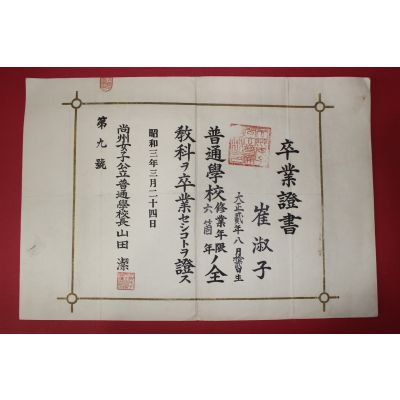 卒業證書
崔淑子
大正貳年八月
生
普通學校修業年限六箇年ノ全
教科ヲ卒業セシコトヲ證ス
昭和三年三月二十四日
尚州女子公立普通學校長山田潔
第九號